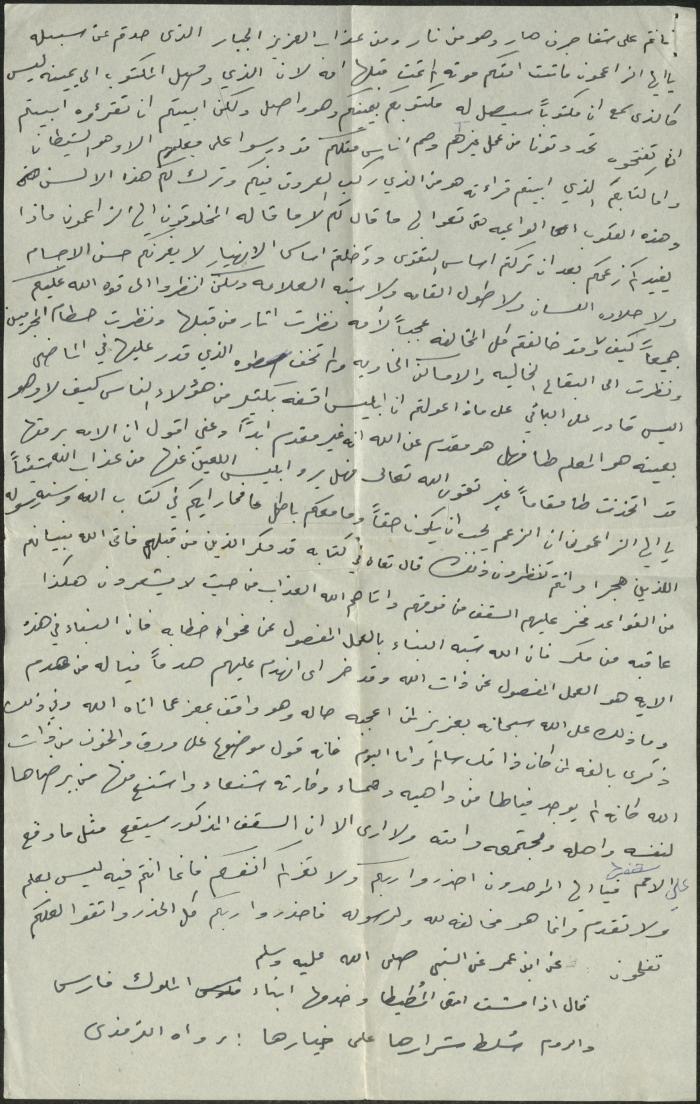 فأنتم على شفا جرف هار وهو من نار ومن عذاب العزيز الجبار الذي صدكم عن سبيله
يا ايها الزاعمون ماتت امتكم موته ما متت قبلها امه لان الذي وصل المكتوب الى يمينه ليس
كالذي سمع ان مكتوباً سيصل له مكتوبكم بيمينكم وهو واصل ولكن ابيتم ان تقرؤوه ابيتم
ان تفتحوه تحدوتونا من عمل غيرهم وهم اناس مثلكم قد درسوا على معلمهم الا وهو الشيطان
واما كتابكم الذي ابيتم قراءته هو من الذي ركب العروق فيكم وترك لكم هذا الالسن
وهذه القلوب الواعيه حتى تقولوا ما قال لكم لا ما قاله المخلوقون ايها الزاعمون ماذا
يفيدكم زعمكم بعد ان تركتم اساس التقوى ودخلتم اساس الانهيار لا يغرنكم حسن الاجسام
ولا حلاوه اللسان ولا طول القامه ولا شبه العلامه ولكن انظروا الى قوه الله عليكم
جميعاً كيف لا وقد خالفتم كل المخالفه عجباً لأمه نظرت اثار من قبلها ونظرت حطام المجرمين
ونظرت الى البقاع الخاليه والاماكن الخاويه ولم تخف الذي قدر عليها في الماضي
اليس قادر على الباقي على ماذا عولتم ان ابليس اقنعه بكثير من هؤلاء الناس كيف لا وهو
بعينه هو المعلم لها فهل هو مقدم عن الله انه غير مقدم ابداً وعني اقول ان الامه برمتها
قد اتخذت لها مقاماً غير تقوى الله تعالى فهل يرد ابليس اللعين عنها من عذاب الله شيئاً
يا ايها الزاعمون ان الزعم يجب ان يكون حقاً وما معكم باطل فما رايكم في كتاب الله وسنة رسوله
اللذين هجرا وانتم تنظرون ذلك قال تعالى في كتابه قد مكر الذين من قبلهم فاتى الله بنيانهم
من القواعد فخر عليهم السقف من فوقهم واتاهم الله العذاب من حيث لا يشعرون هكذا
عاقبه من مكر فان الله شبه البناء بالعمل المفصول عن فحواه خطابه فان البناء في هذه
الايه هو العمل المفصول عن ذات الله وقد خر اي انهدم عليهم هدماً فياله من هدم
وما ذلك على الله سبحانه بعزيز لمن اعجبه حاله وهو واقف بمعزل عما اتاه الله وفي ذلك
ذكرى بالغه لمن كان ذا قلب سليم واما اليوم فانه قول موضوع على ورق والخوف من ذات
الله كانه لم يوجد فيالها من داهيه دهماء وكارثه شنعاء واشنع منها من يرضاها
لنفسه واهله ومجتمعه وامته ولا ارى الا ان السقف المذكور سيقع مثل ما وقع
على سقفها الامم فيا ايها الموحدون احذروا ربكم ولا تغركم انفسكم فانما انتم فيه ليس بعلم
ولا تقدم وانما هو مخالفه لله ولرسوله فاحذروا ربكم كل الحذر واتقوا لعلكم
تفلحون عن ابن عمر عن النبي صلى الله عليه وسلم
قال اذا مشت امتي المُطيطا وخدمها ابناء الملوك فارس
والروم سُلط شرارها على خيارها : رواه الترمذي